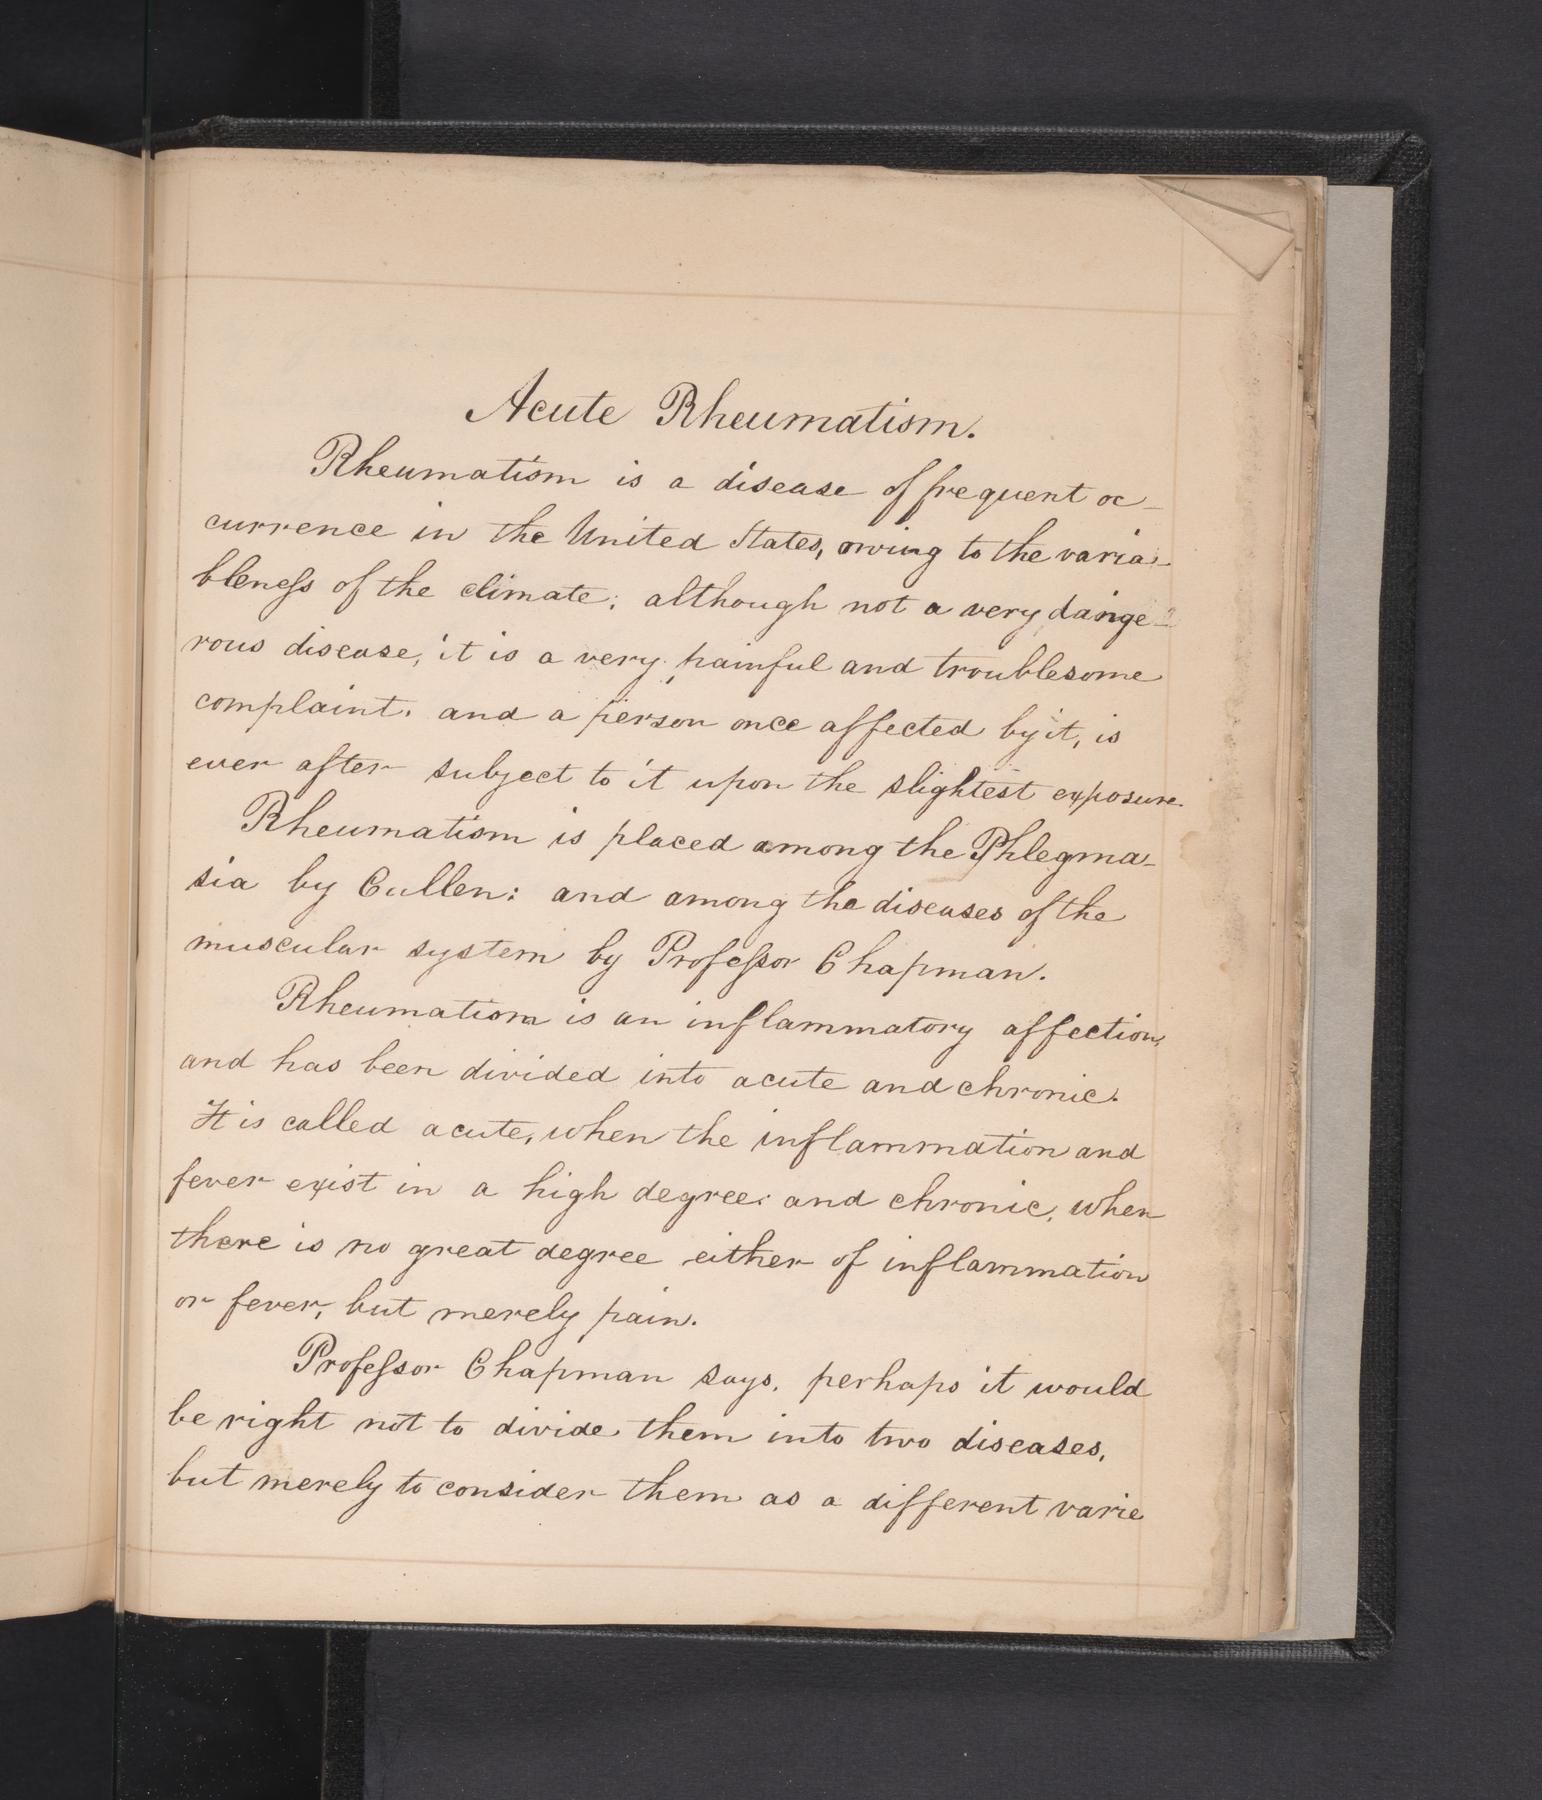 Acute Rheumatism.
Rheumatism is a disease of frequent oc-
currence in the United States, owing to the varia-
bleness of the climate; although not a very dange-
rous disease, it is a very painful and troublesome
complaint, and a person once affected by it, is
ever after subject to it upon the slightest exposure.
Rheumatism is placed among the Phlegma-
sia by Cullen: and among the diseases of the
muscular system by Professor Chapman.
Rheumatism is an inflammatory affection,
and has been divided into acute and chronic.
It is called acute, when the inflammation and
fever exist in a high degree: and chronic, when
there is no great degree either of inflammation
or fever, but merely pain.
Professor Chapman says, perhaps it would
be right not to divide them into two diseases,
but merely to consider them as a different varie